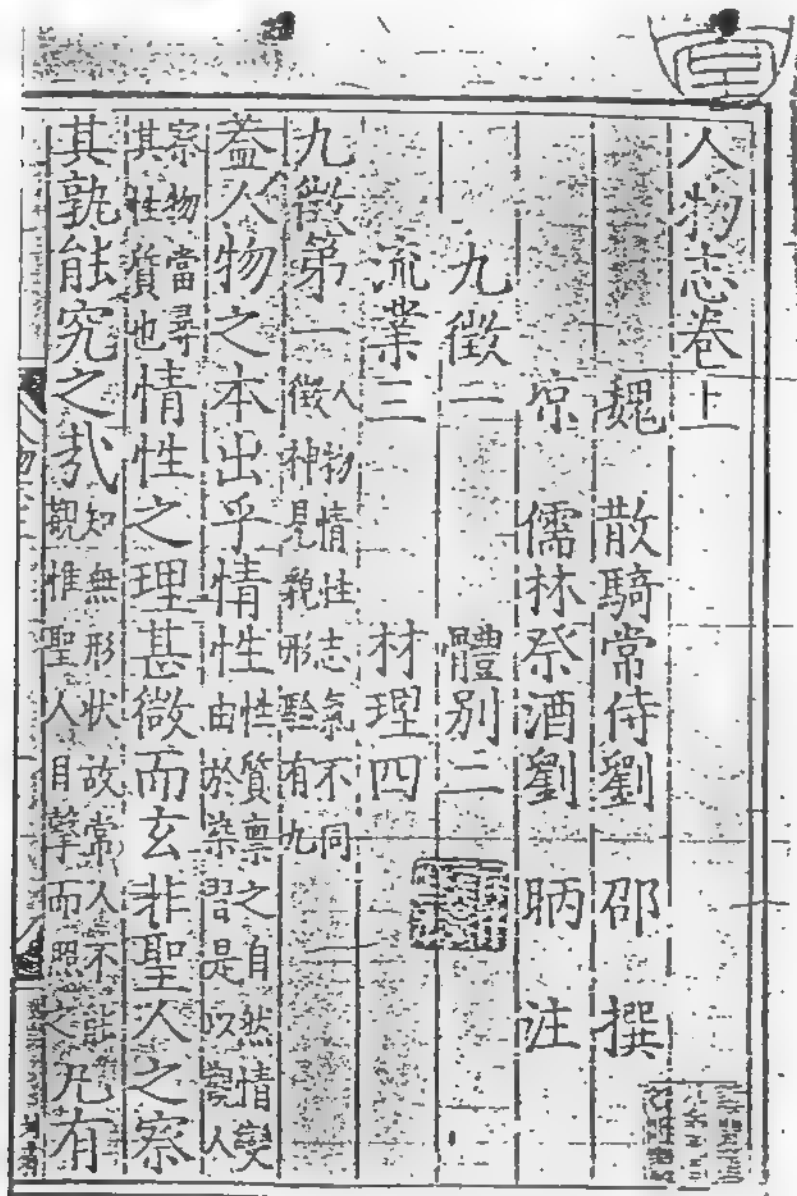 人物志卷上
魏 散騎常侍劉 邵 撰
凉 儒林祭酒劉 昞 注
九徵一 體別二
流業三 材理四
九徵第一 人物情性志氣不同徵神見貌形驗有九
葢人物之本出乎情性 性質禀之自然情變由於染習是以觀人
察物當尋其性質也 情性之理甚微而玄非聖人之察
其孰能究之哉 知無形狀故常人不能觀惟聖人目擊而照之 凡有